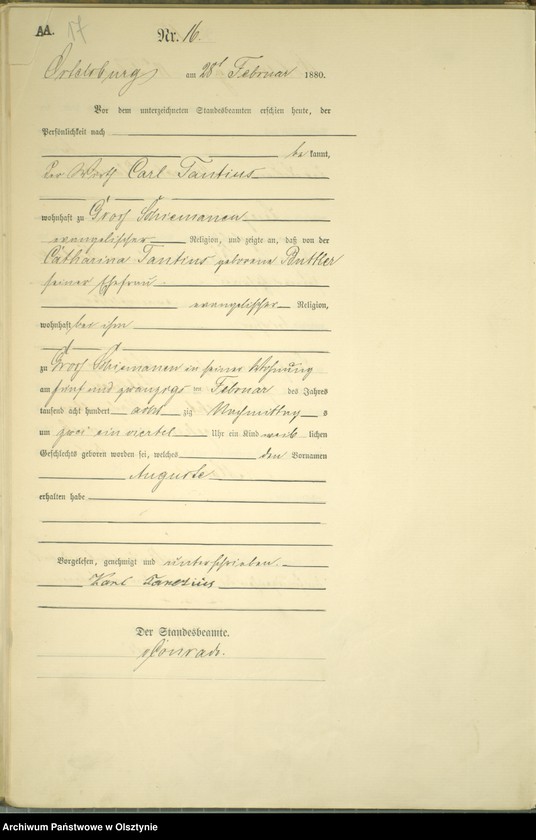 AA. 17
Nr. 16.
Ortelsburg am 28t Februar 1880.
Vor dem unterzeichneten Standesbeamten erschien heute, der
Persönlichkeit nach
be kannt,
der Wirth Carl Tantius
wohnhaft zu Groß Schiemanen
evangelischer Religion, und zeigte an, daß von der
Catharina Tantius geborene Buttler
seiner Ehefrau
evangelischer Religion,
wohnhaft bei ihm
zu Groß Schiemanen in seiner Wohnung
am fünf und zwanzigs ten Februar des Jahres
tausend acht hundert acht zig Nachmittag s
um zwei ein viertel Uhr ein Kind weib lichen
Geschlechts geboren worden sei, welches den Vornamen
Auguste
erhalten habe
Vorgelesen, genehmigt und unterschrieben
Karl Tanczius
Der Standesbeamte.
Conrad.
Archiwum Państwowe w Olsztynie